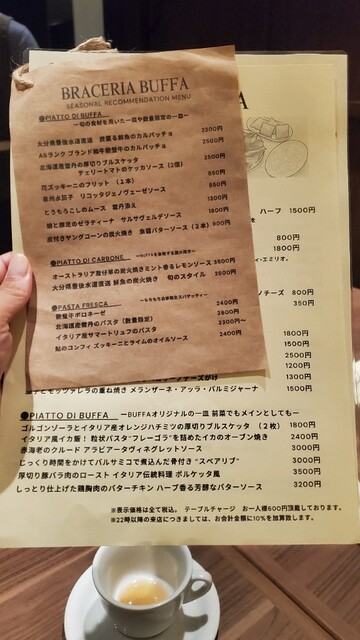 BRACERIA BUFFA
SEASONAL RECOMMENDATION MENU
●PIATTO DI BUFFA
ー旬の食材を用いた一皿や数量限定の一皿ー
大分県豊後水道直送 鮮魚のカルパッチョ 2300円
A5ランク ブランド和牛のカルパッチョ 2500円
北海道産雲丹の厚切りブルスケッタ 2500円
チェリートマトのケッカソース (2個) 850円
花ズッキーニのフリット (1本) 850円
泉州水茄子 リコッタジェノヴェーゼソース 1300円
とうもろこしのムース 雲丹添え 1800円
サルサヴェルデソース 1800円
皮付きヤングコーンの炭火焼き 魚醤バターソース (2本) 900円
●PIATTO DI CARBONE
オーストラリア産仔羊の炭火焼き ミント香るレモンソース 3800円
大分県豊後水道直送 鮮魚の炭火焼き 旬のスタイル 3500円
●PASTA FRESCA
ーもちもち自家製生スパゲッティー
飛騨牛ボロネーゼ 2400円
北海道産雲丹のパスタ (数量限定) 2800円
イタリア産サマートリュフのパスタ 3300円〜
鮎のコンフィ ズッキーニとライムのオイルソース 2400円
A
ハーブ 1500円
800円
1800円
チーズ 800円
350円
1800円
1500円
2500円
1200円
1300円
モッツァレラの重ね焼き メランザーネ・アッラ・パルミジャーナ 1500円
●PIATTO DI BUFFA ーBUFFAオリジナルの一皿 前菜でもメインとしてもー
ゴルゴンゾーラとイタリア産オレンジハチミツの厚切りブルスケッタ (2枚) 1800円
イタリア風イカ飯！ 粒状パスタ"フレーゴラ"を詰めたイカのオーブン焼き 2400円
赤海老のクルード アラビアータヴィネグレットソース 3000円
じっくり時間をかけてバルサミコで煮込んだ骨付き "スペアリブ" 3000円
厚切り豚バラ肉のロースト イタリア伝統料理 ポルケッタ風 3500円
しっとり仕上げた鶏胸肉のバターチキン ハーブ香る芳醇なバターソース 3200円
※表示価格は全て税込。 テーブルチャージ お一人様600円頂戴しております。
※22時以降の来店につきましては、お会計金額に10%を加算致します。